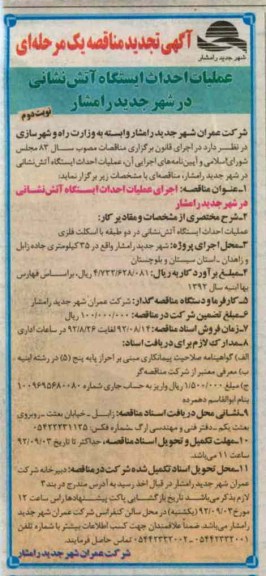 شهر جدید رامشار
آگهی تجدید مناقصه یک مرحله‌ای
عملیات احداث ایستگاه آتش نشانی
در شهر جدید رامشار
نوبت دوم
شرکت عمران شهر جدید رامشار وابسته به وزارت راه و شهرسازی
در نظر دارد در اجرای قانون برگزاری مناقصات مصوب سال ۸۳ مجلس
شورای اسلامی و آیین‌نامه‌های اجرایی آن، عملیات احداث ایستگاه آتش نشانی
در شهر جدید رامشار، مناقصه‌ای با مشخصات زیر برگزار نماید:
۱-عنوان مناقصه: اجرای عملیات احداث ایستگاه آتش نشانی
در شهر جدید رامشار
۲-شرح مختصری از مشخصات و مقادیر کار:
عملیات احداث ایستگاه آتش نشانی در دو طبقه با اسکلت فلزی
۳-محل اجرای پروژه: شهر جدید رامشار واقع در ۳۵ کیلومتری جاده زابل
و زاهدان - استان سیستان و بلوچستان
۴-مبلغ برآورد کار به ریال: ۴/۷۳۲/۶۲۸/۰۸۱ ریال، براساس فهارس
بها ابنیه سال ۱۳۹۲
۵-کارفرما و دستگاه مناقصه گذار: شرکت عمران شهر جدید رامشار
۶-مبلغ تضمین شرکت در مناقصه: ۱۰۰/۰۰۰/۰۰۰ ریال
۷-زمان فروش اسناد مناقصه: ۹۲/۰۸/۱۴ لغایت ۹۲/۸/۲۶ در ساعات اداری
۸-مدارک لازم برای دریافت اسناد:
الف) گواهینامه صلاحیت پیمانکاری مبنی بر احراز پایه پنج (۵) در رشته ابنیه
ب) معرفی معتبر از شرکت مناقصه‌گر
ج) مبلغ ۱/۵۰۰/۰۰۰ ریال واریز به حساب جاری شماره ۱۰۰۹۶۹۵۶۸۰۰۸۰
بنام ابوالقاسم دهمرده
۹-نشانی محل دریافت اسناد مناقصه: زابل - خیابان بعثت - روبروی
بعثت یکم - دفتر فنی و مهندسی ارگ شماره فکس: ۰۵۴۲۲۳۳۱۱۲۵
۱۰-مهلت تکمیل و تحویل اسناد مناقصه، حداکثر تا تاریخ ۹۲/۰۹/۰۳
ساعت ۱۱ می‌باشد.
۱۱-محل تحویل اسناد تکمیل شده شرکت در مناقصه: دبیرخانه شرکت
عمران شهر جدید رامشار در قبال اخذ رسید به آدرس مندرج در بند ۳
لازم بذکر می‌باشد تاریخ بازگشایی پاکت پیشنهادها راس ساعت ۱۲
مورخ ۹۲/۰۹/۰۳ (یکشنبه) در محل سالن کنفرانس شرکت عمران شهر جدید
رامشار می‌باشد ضمناً علاقمندان جهت کسب اطلاعات بیشتر با شماره تلفن
۰۵۴۴۲۳۳۲۰۰۱ - ۰۵۴۴۲۳۳۲۰۰۲ تماس حاصل فرمایند.
شرکت عمران شهر جدید رامشار